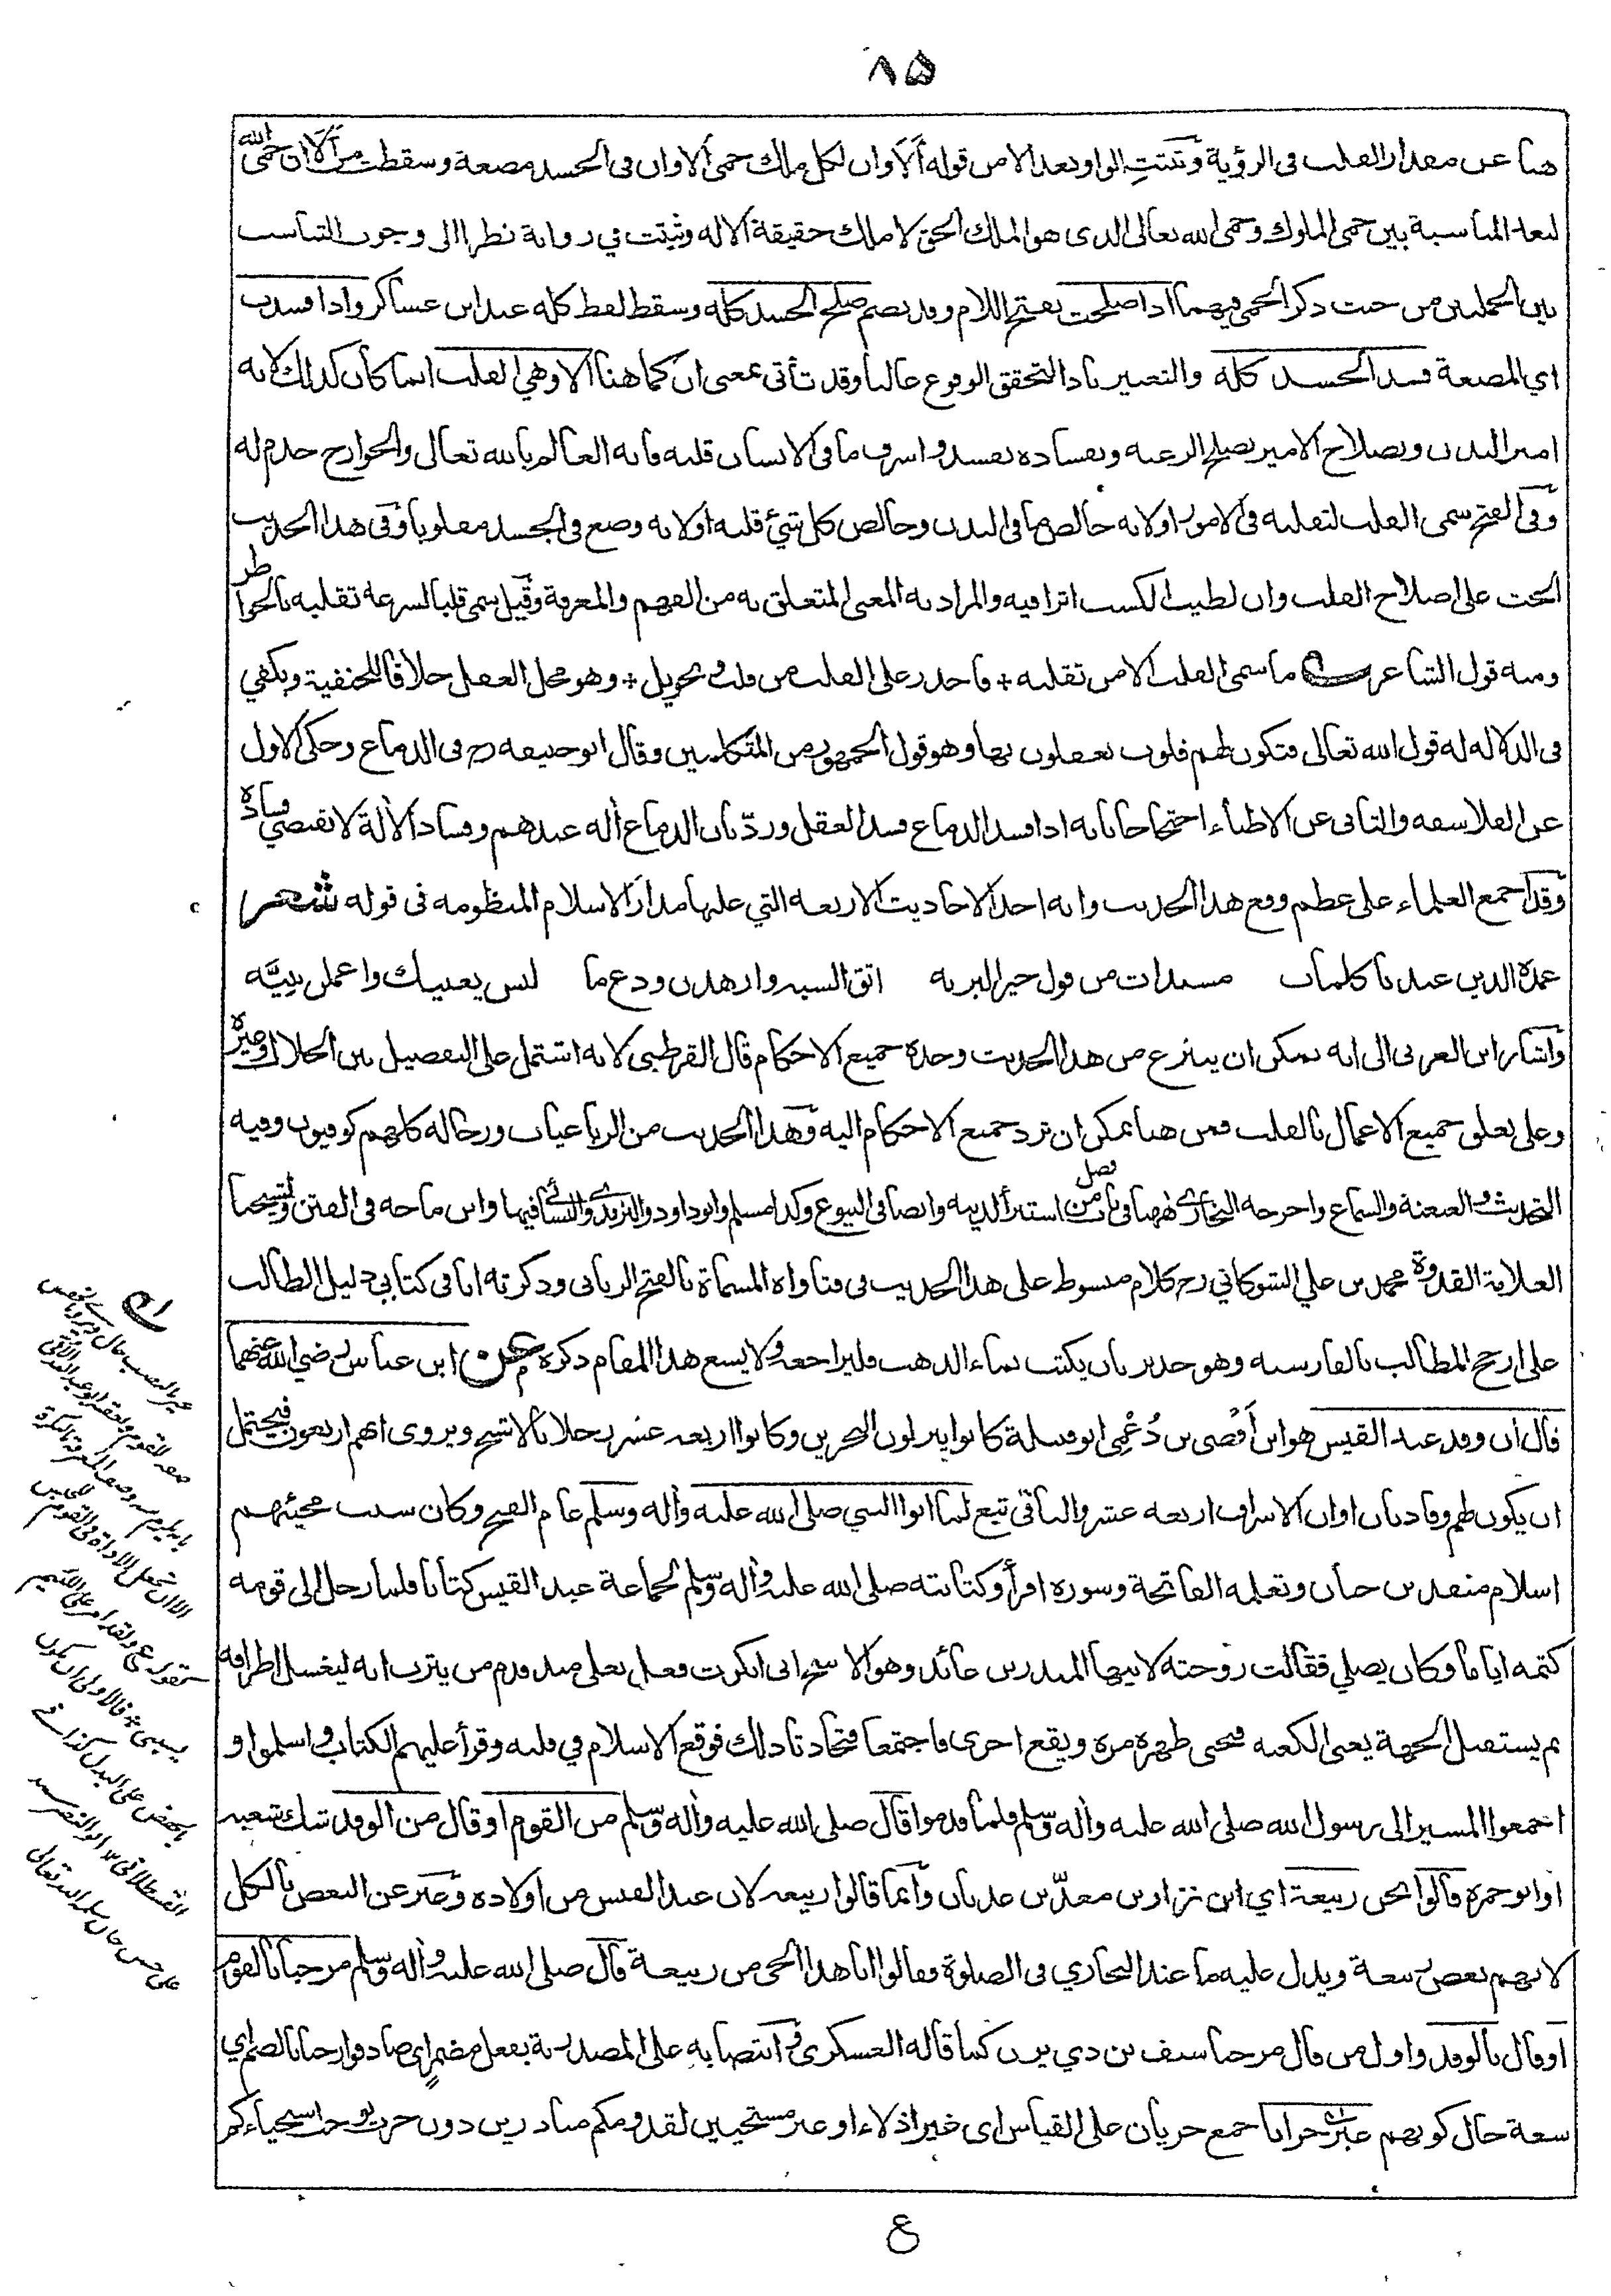 ٨٥
هنا عن مقدار القلب في الرؤية وثبتت الواو بعد الا من قوله ألا وان لكل ملك حمى ألا وان في الجسد مضغة وسقطت من ألا ان حمى الله
لبعد المناسبة بين حمى الملوك وحمى الله تعالى الذي هو الملك الحق لا ملك حقيقة الا له وثبتت في رواية نظرا الى وجوب التناسب
بين الجملتين من حيث ذكر الحمى فيهما اذا صلحت بفتح اللام وقد تضم صلح الجسد كله وسقط لفظ كله عند ابن عساكر واذا فسدت
اي المضغة فسد الجسد كله والتعبير باذا لتحقق الوقوع غالبا وقد تأتي بمعنى ان كما هنا ألا وهي القلب انما كان كذلك لانه
امير البدن وبصلاح الامير تصلح الرعية وبفساده تفسد واشرف ما في الانسان قلبه فانه العالم بالله تعالى والجوارح خدم له
وفي الفتح سمي القلب لتقلبه في الامور او لانه خالص ما في البدن وخالص كل شيء قلبه او لانه وضع في الجسد مقلوبا وفي هذا الحديث
الحث على اصلاح القلب وان لطيب الكسب اثرا فيه والمراد به المعنى المتعلق به من الفهم والمعرفة وقيل سمي قلبا لسرعة تقلبه بالخواطر
ومنه قول الشاعر ما سمي القلب الا من تقلبه + فاحذر على القلب من قلب وتحويل + وهو محل العقل خلافا للحنفية ويكفي
في الدلالة له قول الله تعالى فتكون لهم قلوب يعقلون بها وهو قول الجمهور من المتكلمين وقال ابو حنيفة رح في الدماغ وحكي الاول
عن الفلاسفة والثاني عن الاطباء احتجاجا بانه اذا فسد الدماغ فسد العقل وردّ بان الدماغ آلة عندهم وفساد الآلة لا تقتضي فساده
وقد اجمع العلماء على عظم وقع هذا الحديث وانه احد الاحاديث الاربعة التي عليها مدار الاسلام المنظومة في قوله شعر
عمدة الدين عندنا كلمات مسندات من قول خير البرية اتق الشبه وازهدن ودع ما ليس يعنيك واعملن بنيّه
واشار ابن العربي الى انه يمكن ان ينتزع من هذا الحديث وحده جميع الاحكام قال القرطبي لانه اشتمل على التفصيل بين الحلال وغيره
وعلى تعلق جميع الاعمال بالقلب فمن هنا يمكن ان ترد جميع الاحكام اليه وهذا الحديث من الرباعيات ورجاله كلهم كوفيون وفيه
التحديث والعنعنة والسماع واخرجه البخاري ههنا في باب فضل من استبرأ لدينه وايضا في البيوع وكذا مسلم وابو داود والترمذي والنسائي فيها وابن ماجه في الفتن ولشيخنا
العلامة القدوة محمد بن علي الشوكاني رح كلام مبسوط على هذا الحديث في فتاواه المسماة بالفتح الرباني وذكرته انا في كتابي دليل الطالب
على ارجح المطالب بالفارسية وهو جدير بان يكتب بماء الذهب فليراجعه ولا يسع هذا المقام ذكره عن ابن عباس رضي الله عنهما
قال ان وفد عبد القيس هو ابن أفصى بن دُعْمي ابو قبيلة كانوا ينزلون البحرين وكانوا اربعة عشر رجلا بالاشج ويروى انهم اربعون فيحتمل
ان يكون لهم وفادتان او ان الاشراف اربعة عشر والباقي تبع لما اتوا النبي صلى الله عليه وآله وسلم عام الفتح وكان سبب مجيئهم
اسلام منقذ بن حبان وتعلمه الفاتحة وسورة اقرأ وكتابته صلى الله عليه وآله وسلم لجماعة عبد القيس كتابا فلما رحل الى قومه
كتمه اياما وكان يصلي فقالت زوجته لابيها المنذر بن عائذ وهو الاشج اني انكرت فعل بعلي منذ قدم من يثرب انه ليغسل اطرافه
ثم يستقبل الجهة يعني الكعبة فيحني ظهره مرة ويقع اخرى فاجتمعا فتحادثا ذلك فوقع الاسلام في قلبه وقرأ عليهم الكتاب واسلموا و
اجمعوا المسير الى رسول الله صلى الله عليه وآله وسلم فلما قدموا قال صلى الله عليه وآله وسلم من القوم او قال من الوفد شك شعبة
او ابو جمرة قالوا نحن ربيعة اي ابن نزار بن معدّ بن عدنان وانما قالوا ربيعة لان عبد القيس من اولاده وعبر عن البعض بالكل
لانهم بعض ربيعة ويدل عليه ما عند البخاري في الصلوة فقالوا انا هذا الحي من ربيعة قال صلى الله عليه وآله وسلم مرحبا بالقوم
او قال بالوفد واول من قال مرحبا سيف بن ذي يزن كما قاله العسكري وانتصابه على المصدرية بفعل مضمر اي صادفوا رحبا بالضم اي
سعة حال كونهم غير خزايا جمع خزيان على القياس اي غير اذلاء او غير مستحيين لقدومكم مبادرين دون حرب توجب استحياءكم
ع